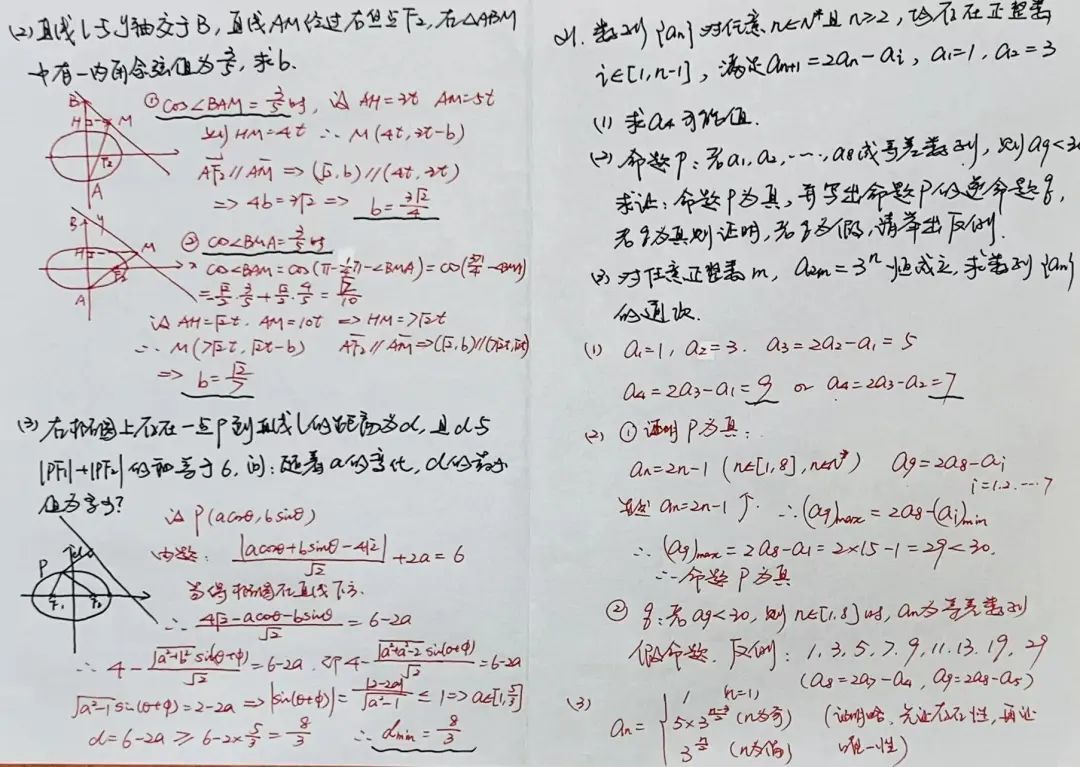 (2) 直线l与y轴交于B，直线AM经过右焦点F₂，在△ABM
中有一内角余弦值为3/5，求b.
① cos∠BAM=3/5时，设AH=3t AM=5t
则HM=4t ∴ M(4t, 3t-b)
AF₂∥AM ⇒ (√2, b)∥(4t, 3t)
⇒ 4b=3√2 ⇒ b=3√2/4
B
H
M
F₂
A
② cos∠BMA=3/5时
cos∠BAM=cos(π-¼π-∠BMA)=cos(3π/4-∠BMA)
=√2/2·3/5+√2/2·4/5=√2/10
设AH=√2t, AM=10t ⇒ HM=7√2t
∴ M(7√2t, √2t-b) AF₂∥AM⇒(√2, b)∥(7√2t, √2t)
⇒ b=√2/7
B
y
H
M
x
F₂
A
(3) 在椭圆上存在一点P到直线l的距离为d，且d与
|PF₁|+|PF₂|的和等于6，问：随着a的变化，d的最小
值为多少？
设P(acosθ, bsinθ)
由题：|acosθ+bsinθ-4√2|/√2+2a=6
P
F₁
F₂
当得椭圆在直线下方.
∴ (4√2-acosθ-bsinθ)/√2=6-2a
∴ 4-√(a²+b²)sin(θ+φ)/√2=6-2a. 即4-√(a²+a²-2)sin(θ+φ)/√2=6-2a
√(a²-1)sin(θ+φ)=2-2a ⇒ |sin(θ+φ)|=|2-2a|/√(a²-1)≤1⇒a∈[1, 5/3]
d=6-2a≥6-2×5/3=8/3 ∴ dmin=8/3
21. 数列{an}对任意n∈N*且n≥2，均存在正整数
i∈[1, n-1]，满足an+1=2an-ai, a1=1, a2=3
(1) 求a4可能值.
(2) 命题P：若a1, a2, ⋯, a8成等差数列，则a9<30
求证：命题P为真，并写出命题P的逆命题q，
若q为真则证明，若q为假，请举出反例.
(3) 对任意正整数m, a2m=3ⁿ恒成立，求数列{an}
的通项.
(1) a1=1, a2=3. a3=2a2-a1=5
a4=2a3-a1=9 or a4=2a3-a2=7
(2) ① 证明P为真：
an=2n-1 (n∈[1,8], n∈N*) a9=2a8-ai
i=1.2.⋯7
an=2n-1↑. ∴(a9)max=2a8-(ai)min
∴ (a9)max=2a8-a1=2×15-1=29<30.
∴ 命题P为真
② q：若a9<30, 则n∈[1,8]时, an为等差数列
假命题. 反例：1, 3, 5, 7, 9, 11, 13, 19, 29
(a8=2a7-a4, a9=2a8-a5)
(3) an={1 (n=1)
5×3^((n-3)/2) (n为奇) (证明略，先证存在性，再证
3^(n/2) (n为偶) 唯一性)